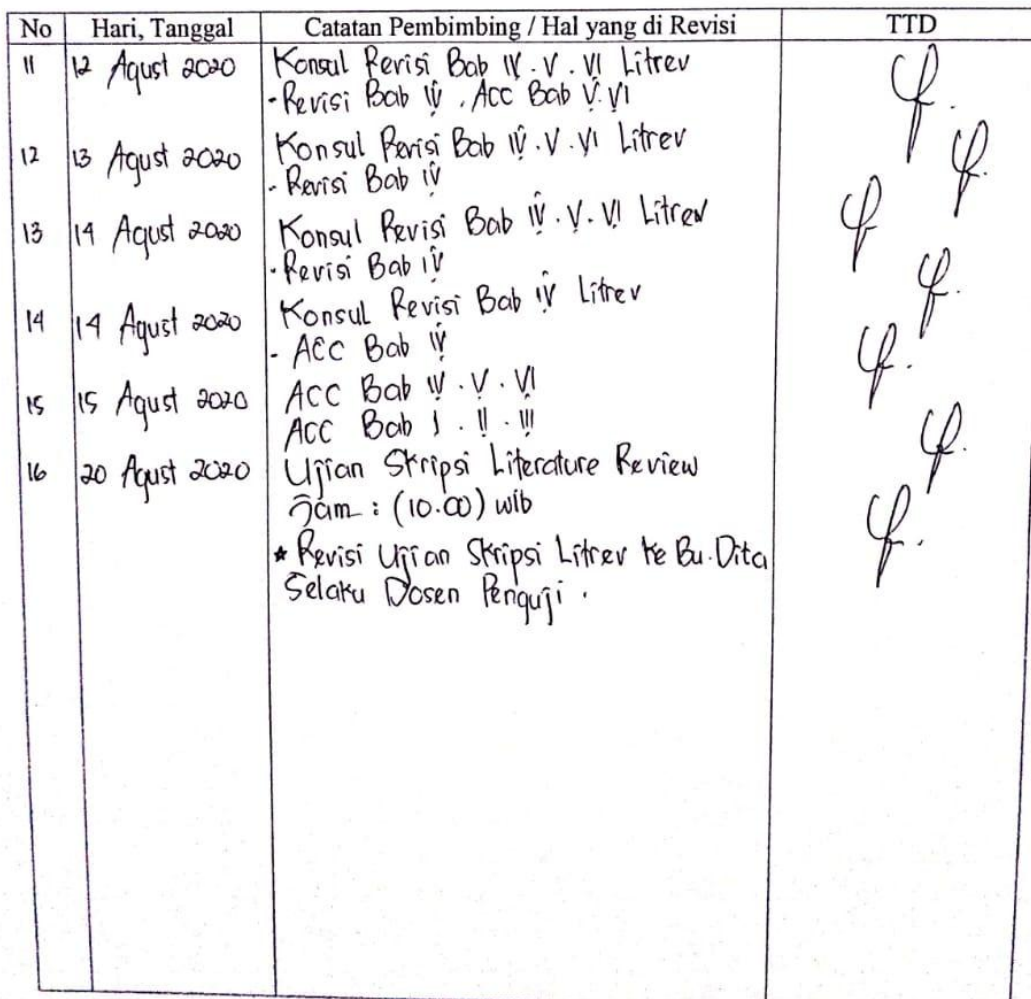 No Hari, Tanggal Catatan Pembimbing / Hal yang di Revisi TTD
11 12 Agust 2020 Konsul Revisi Bab IV . V . VI Litrev
- Revisi Bab IV . ACC Bab V. VI
12 13 Agust 2020 Konsul Revisi Bab IV . V . VI Litrev
- Revisi Bab IV
13 14 Agust 2020 Konsul Revisi Bab IV . V . VI Litrev
- Revisi Bab IV
14 14 Agust 2020 Konsul Revisi Bab IV Litrev
- ACC Bab IV
15 15 Agust 2020 ACC Bab IV . V . VI
ACC Bab I . II . III
16 20 Agust 2020 Ujian Skripsi Literature Review
Jam : (10.00) wib
* Revisi Ujian Skripsi Litrev ke Bu. Dita
Selaku Dosen Penguji .